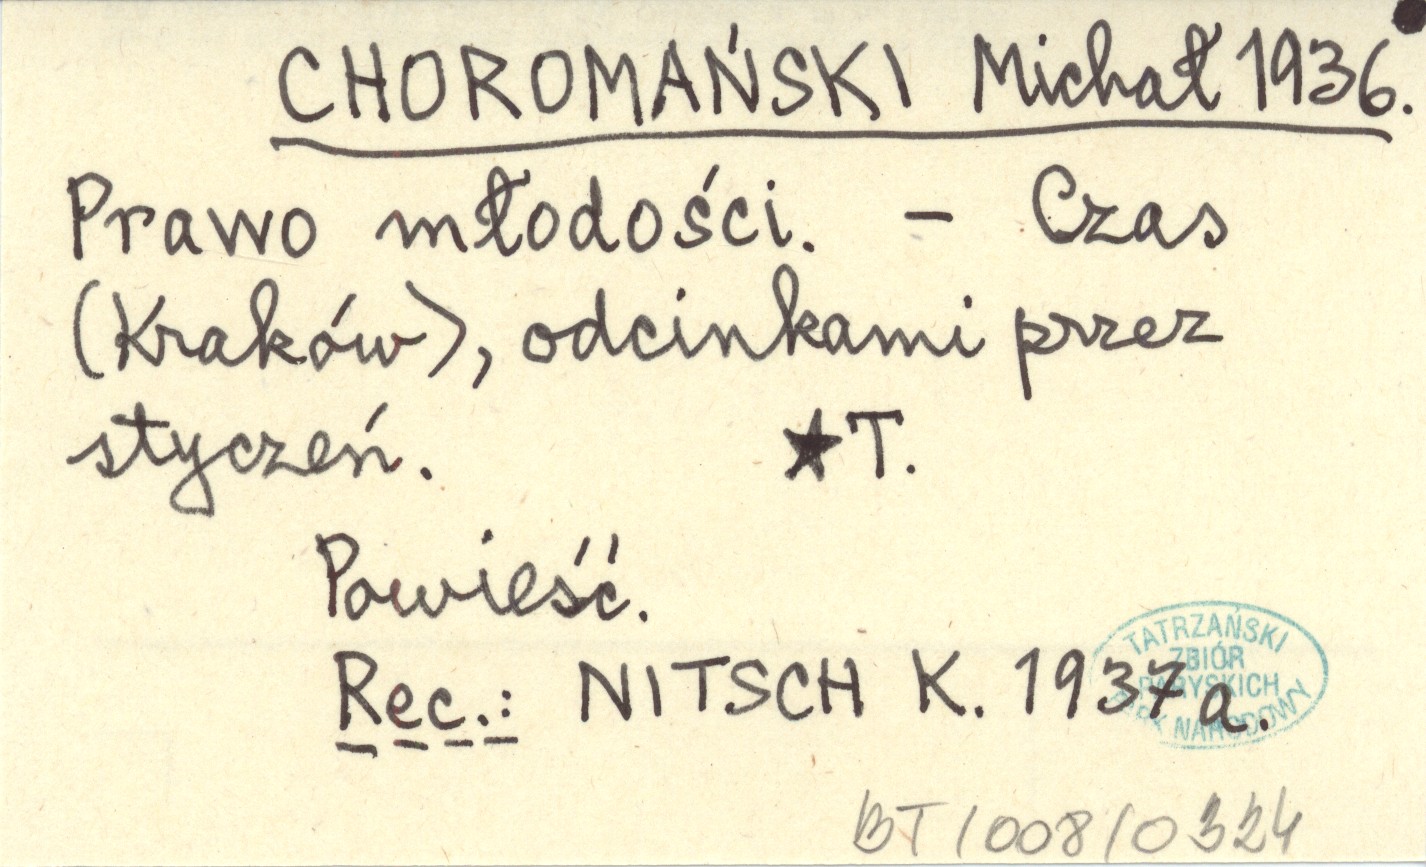 CHOROMAŃSKI Michał 1936.
Prawo młodości. – Czas
(Kraków), odcinkami przez
styczeń. ★T.
Powieść.
Rec.: NITSCH K. 1937a.
TATRZAŃSKI
ZBIÓR
PARYSKICH
PARK NARODOWY
BT/008/0324